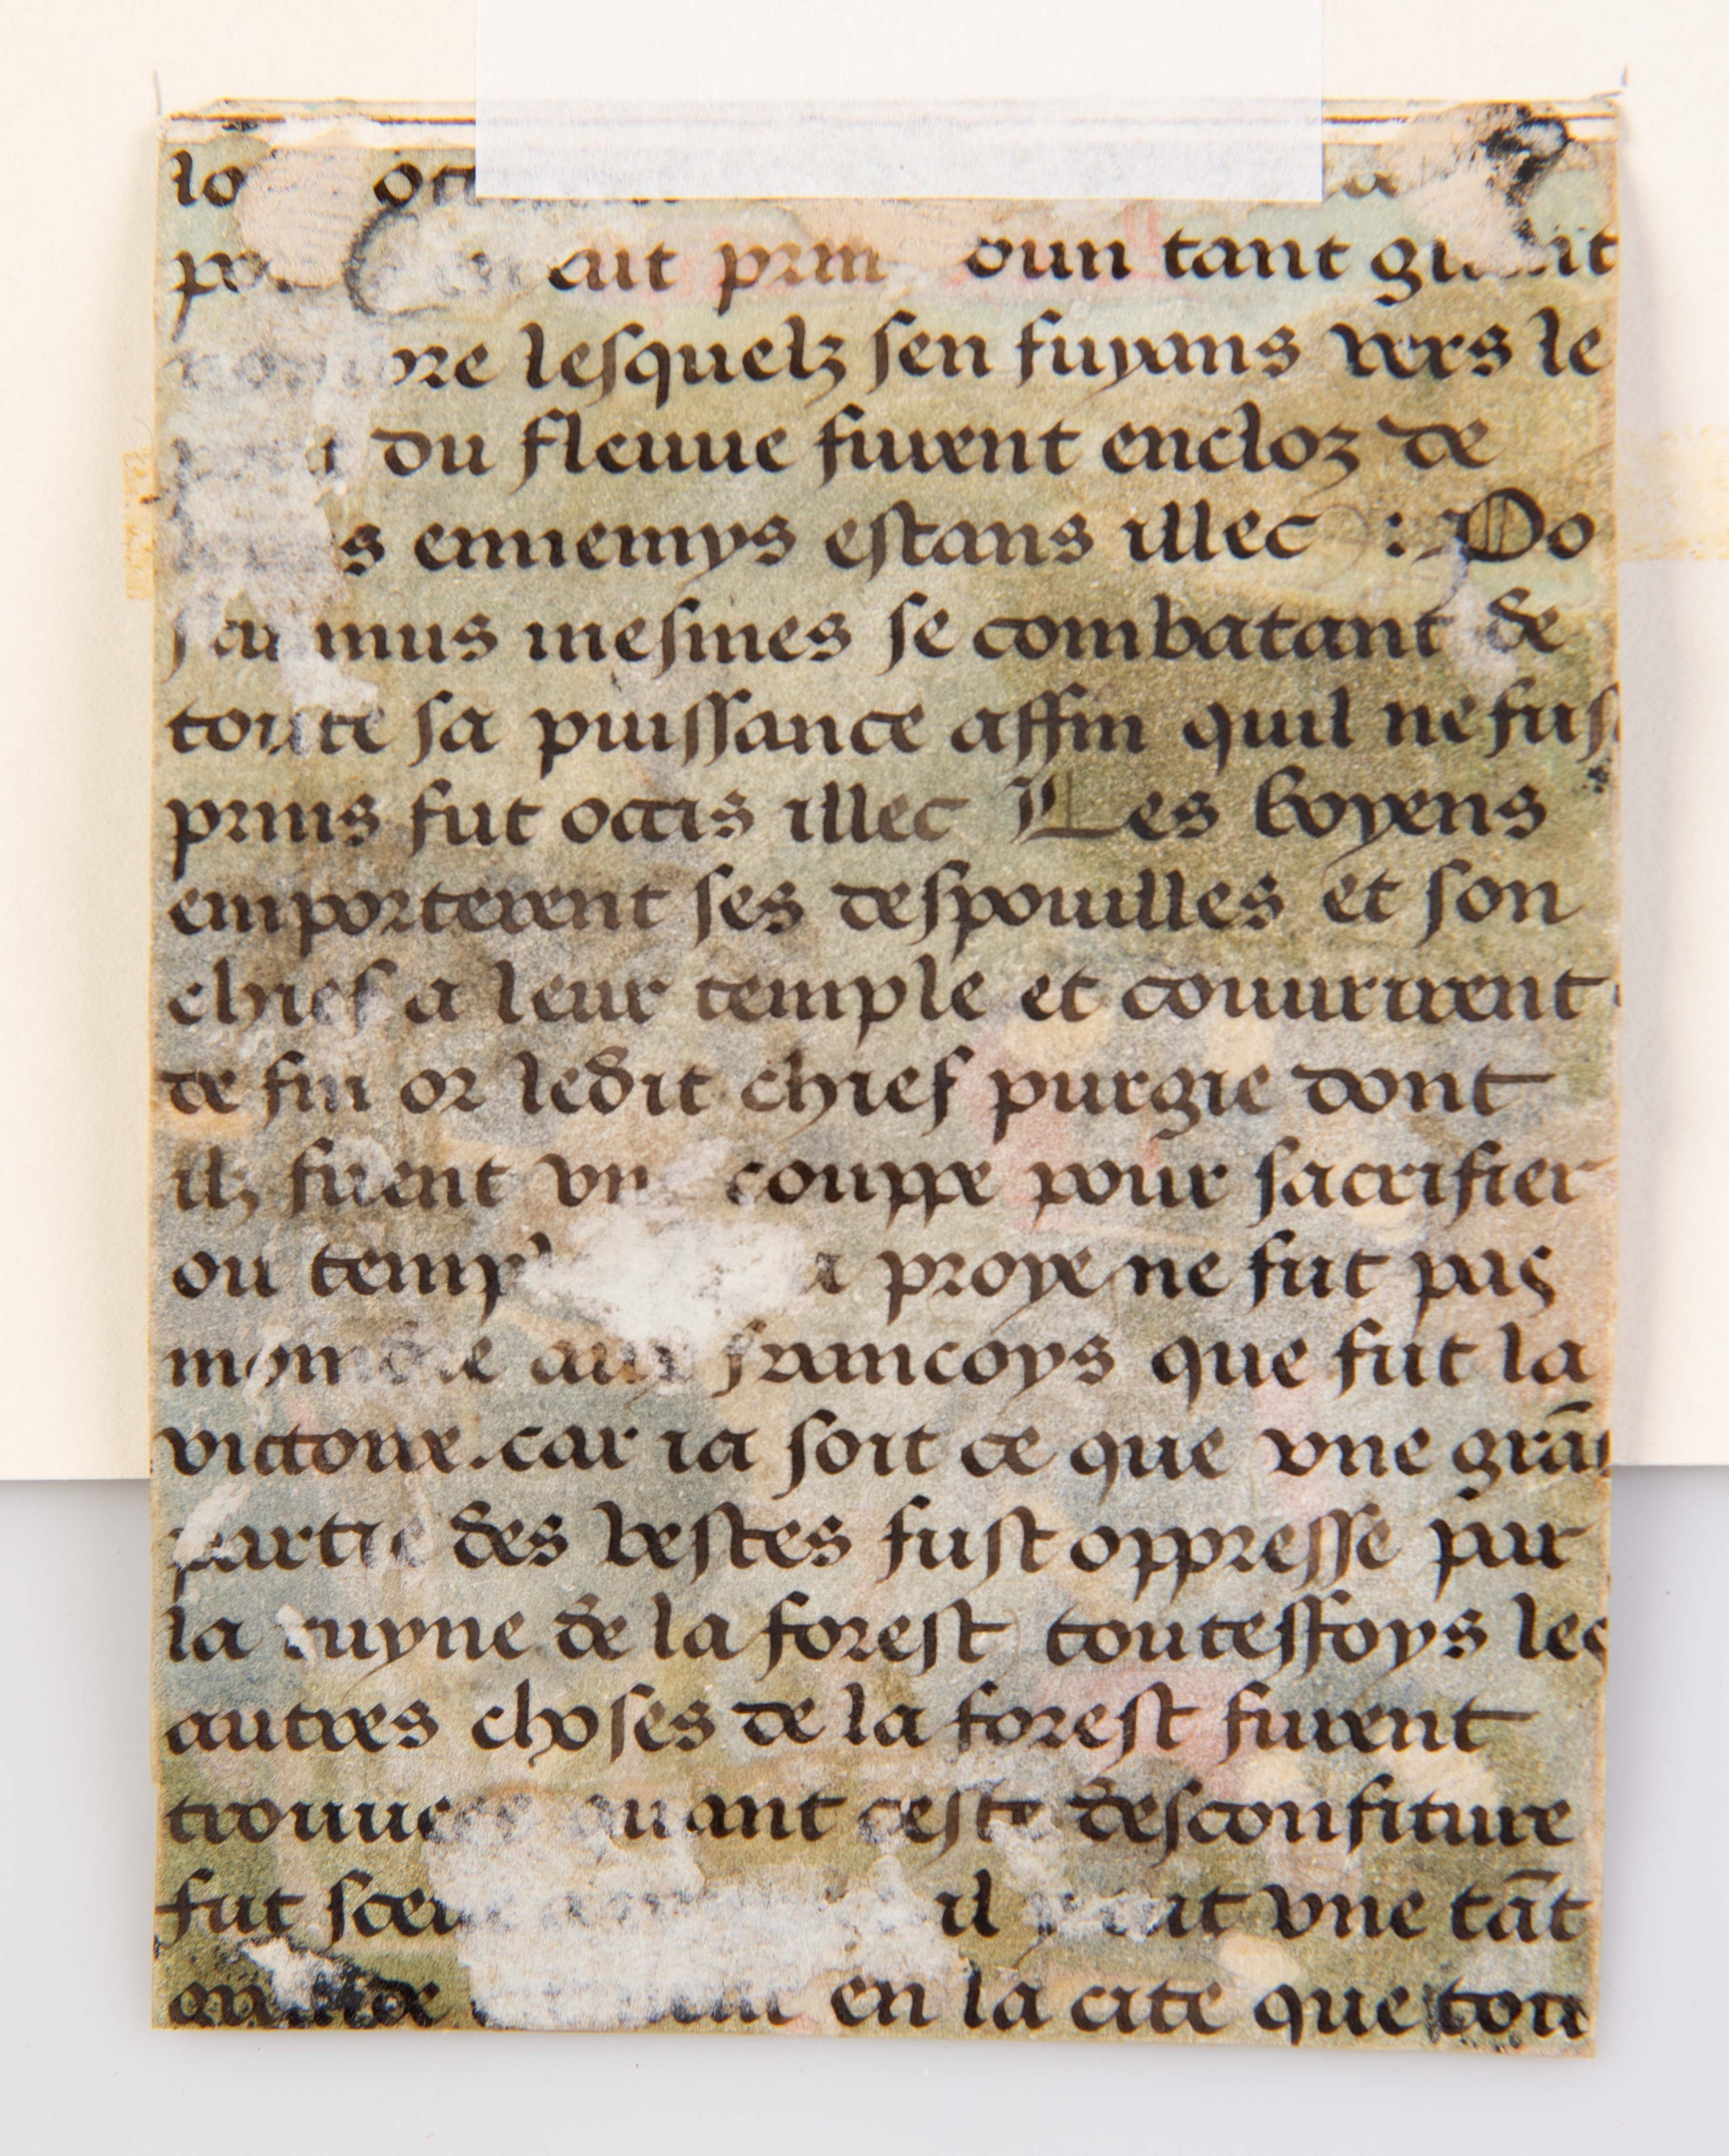 lo
oun tant
lesquelz sen fuyans vers le
du fleuue furent encloz de
ennemys estans illec : Po
mus mesmes se combatant de
toute sa puissance affin quil ne fust
prins fut occis illec Les boyens
emporterent ses despouilles et son
chief a leur temple et couurirent
de fin or ledit chief purgie dont
ilz firent vn couppe pour sacrifier
ou proye ne fut pas
francoys que fut la
victoire. car ia soit ce que vne grãd
partie des bestes fust oppresse par
la ruyne de la forest toutesfoys les
autres choses de la forest furent
ceste desconfiture
fut il vne tãt
en la cite que tou